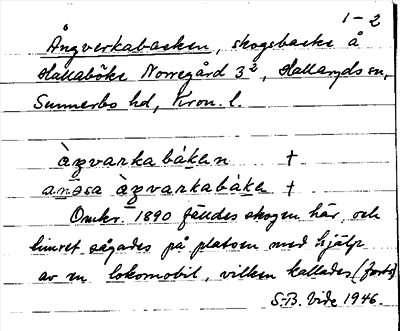 1-2
Ångverkabacken, skogsbacke å
Hallaböke Norregård 3², Hallaryds sn,
Sunnerbo hd, Kron. l.
àŋvarkabákən †
anəsa àŋvarkabákə †
Omkr. 1890 fälldes skogen här, och
virket sågades på platsen med hjälp
av en lokomobil, vilken kallades (forts)
S-B. Vide 1946.